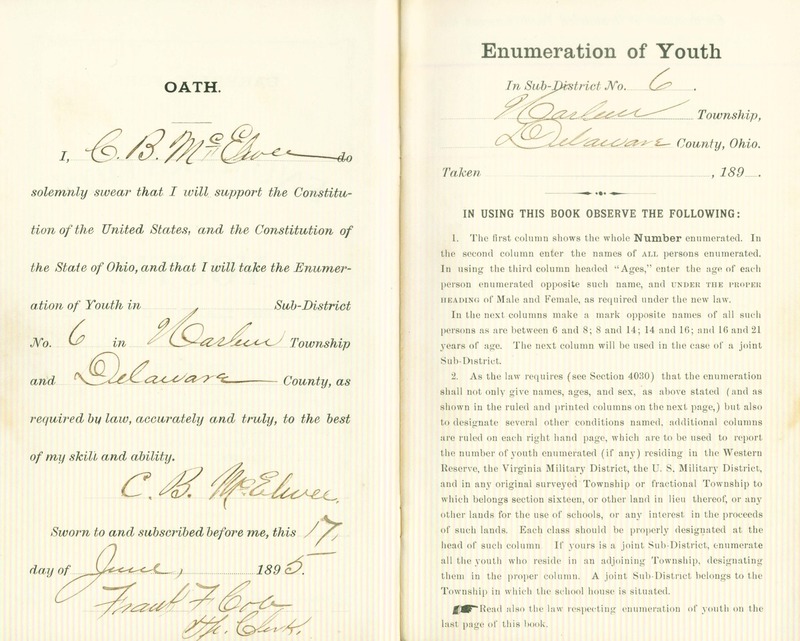 OATH.
I, C. B. McElwee do
solemnly swear that I will support the Constitu-
tion of the United States, and the Constitution of
the State of Ohio, and that I will take the Enumer-
ation of Youth in Sub-District
No. 6 in Harlem Township
and Delaware County, as
required by law, accurately and truly, to the best
of my skill and ability.
C. B. McElwee.
Sworn to and subscribed before me, this 17,
day of June, 1895.
Frank F
Tp. Clerk.
Enumeration of Youth
In Sub-District No. 6.
Harlem Township,
Delaware County, Ohio.
Taken , 189 .
IN USING THIS BOOK OBSERVE THE FOLLOWING:
1. The first column shows the whole Number enumerated. In
the second column enter the names of ALL persons enumerated.
In using the third column headed "Ages," enter the age of each
person enumerated opposite such name, and UNDER THE PROPER
HEADING of Male and Female, as required under the new law.
In the next columns make a mark opposite names of all such
persons as are between 6 and 8; 8 and 14; 14 and 16; and 16 and 21
years of age. The next column will be used in the case of a joint
Sub-District.
2. As the law requires (see Section 4030) that the enumeration
shall not only give names, ages, and sex, as above stated (and as
shown in the ruled and printed columns on the next page,) but also
to designate several other conditions named, additional columns
are ruled on each right hand page, which are to be used to report
the number of youth enumerated (if any) residing in the Western
Reserve, the Virginia Military District, the U. S. Military District,
and in any original surveyed Township or fractional Township to
which belongs section sixteen, or other land in lieu thereof, or any
other lands for the use of schools, or any interest in the proceeds
of such lands. Each class should be properly designated at the
head of such column. If yours is a joint Sub-District, enumerate
all the youth who reside in an adjoining Township, designating
them in the proper column. A joint Sub-District belongs to the
Township in which the school house is situated.
Read also the law respecting enumeration of youth on the
last page of this book.